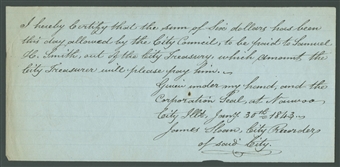 I hereby Certify that the sum of Six dollars has been
this day allowed by the City Council, to be paid to Samuel
H. Smith, out of the City Treasury which amount, the
City Treasurer will please pay him.
Given under my hand, and the
Corporation Seal, at Nauvoo
City Ills, Jany 30th 1843.
James Sloan, City Recorder
of said City.